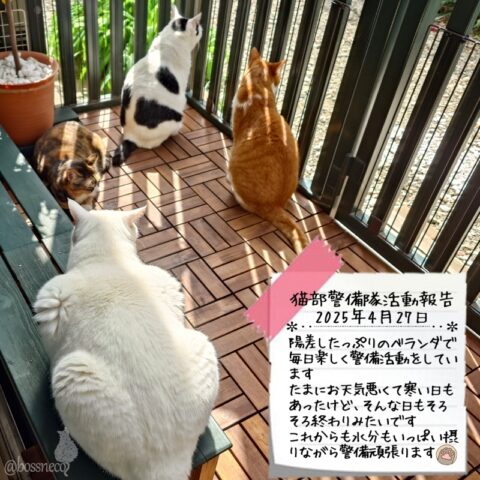 猫部警備隊活動報告
2025年4月27日
陽差したっぷりのベランダで
毎日楽しく警備活動をしてい
ます
たまにお天気悪くて寒い日も
あったけど、そんな日もそろ
そろ終わりみたいです
これからも水分もいっぱい摂
りながら警備頑張ります
@bossneco